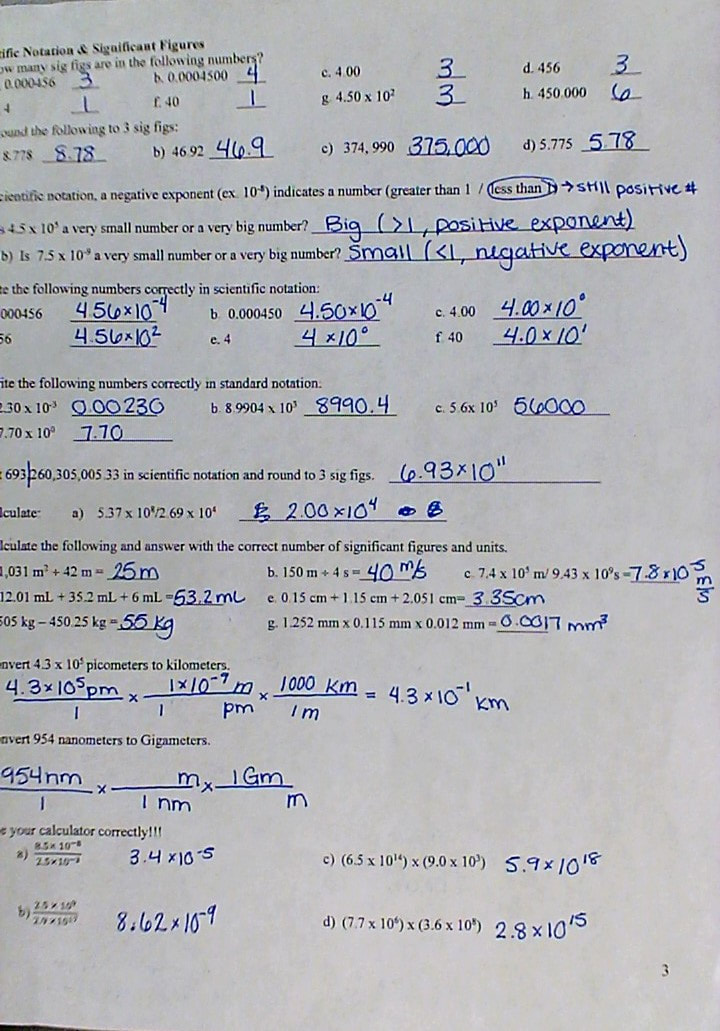 Notation & Significant Figures
many sig figs are in the following numbers?
0.000456 3 b. 0.0004500 4 c. 4.00 3 d. 456 3
4 1 f. 40 1 g. 4.50 x 10² 3 h. 450.000 6
the following to 3 sig figs:
8.778 8.78 b) 46.92 46.9 c) 374, 990 375,000 d) 5.775 5.78
notation, a negative exponent (ex. 10⁻⁸) indicates a number (greater than 1 / less than 1) → still positive #
4.5 x 10⁵ a very small number or a very big number? Big (>1, positive exponent)
b) Is 7.5 x 10⁻⁹ a very small number or a very big number? Small (<1, negative exponent)
the following numbers correctly in scientific notation:
000456 4.56×10⁻⁴ b. 0.000450 4.50×10⁻⁴ c. 4.00 4.00 × 10⁰
56 4.56×10² e. 4 4 ×10⁰ f. 40 4.0 × 10¹
the following numbers correctly in standard notation.
2.30 x 10⁻³ 0.00230 b. 8.9904 x 10³ 8990.4 c. 5.6x 10⁵ 56000
7.70 x 10⁰ 7.70
693,260,305,005.33 in scientific notation and round to 3 sig figs. 6.93×10¹¹
a) 5.37 x 10⁸/2.69 x 10⁴ 2.00 ×10⁴
the following and answer with the correct number of significant figures and units.
1,031 m² ÷ 42 m = 25m b. 150 m ÷ 4 s = 40 m/s c. 7.4 x 10⁵ m/ 9.43 x 10⁹s = 7.8 x 10⁻⁵ m/s
12.01 mL + 35.2 mL + 6 mL = 53.2mL e. 0.15 cm + 1.15 cm + 2.051 cm= 3.35cm
505 kg – 450.25 kg = 55 kg g. 1.252 mm x 0.115 mm x 0.012 mm = 0.0017 mm³
4.3 x 10⁵ picometers to kilometers.
4.3×10⁵pm × 1×10⁻⁹ m × 1000 km = 4.3 ×10⁻¹ km
1 1 pm 1m
954 nanometers to Gigameters.
954nm × m × 1Gm
1 1 nm m
your calculator correctly!!!
a) 3.4 ×10⁻⁵ c) (6.5 x 10¹⁴) x (9.0 x 10³) 5.9×10¹⁸
b) 8.62×10⁻⁹ d) (7.7 x 10⁶) x (3.6 x 10⁸) 2.8×10¹⁵
3